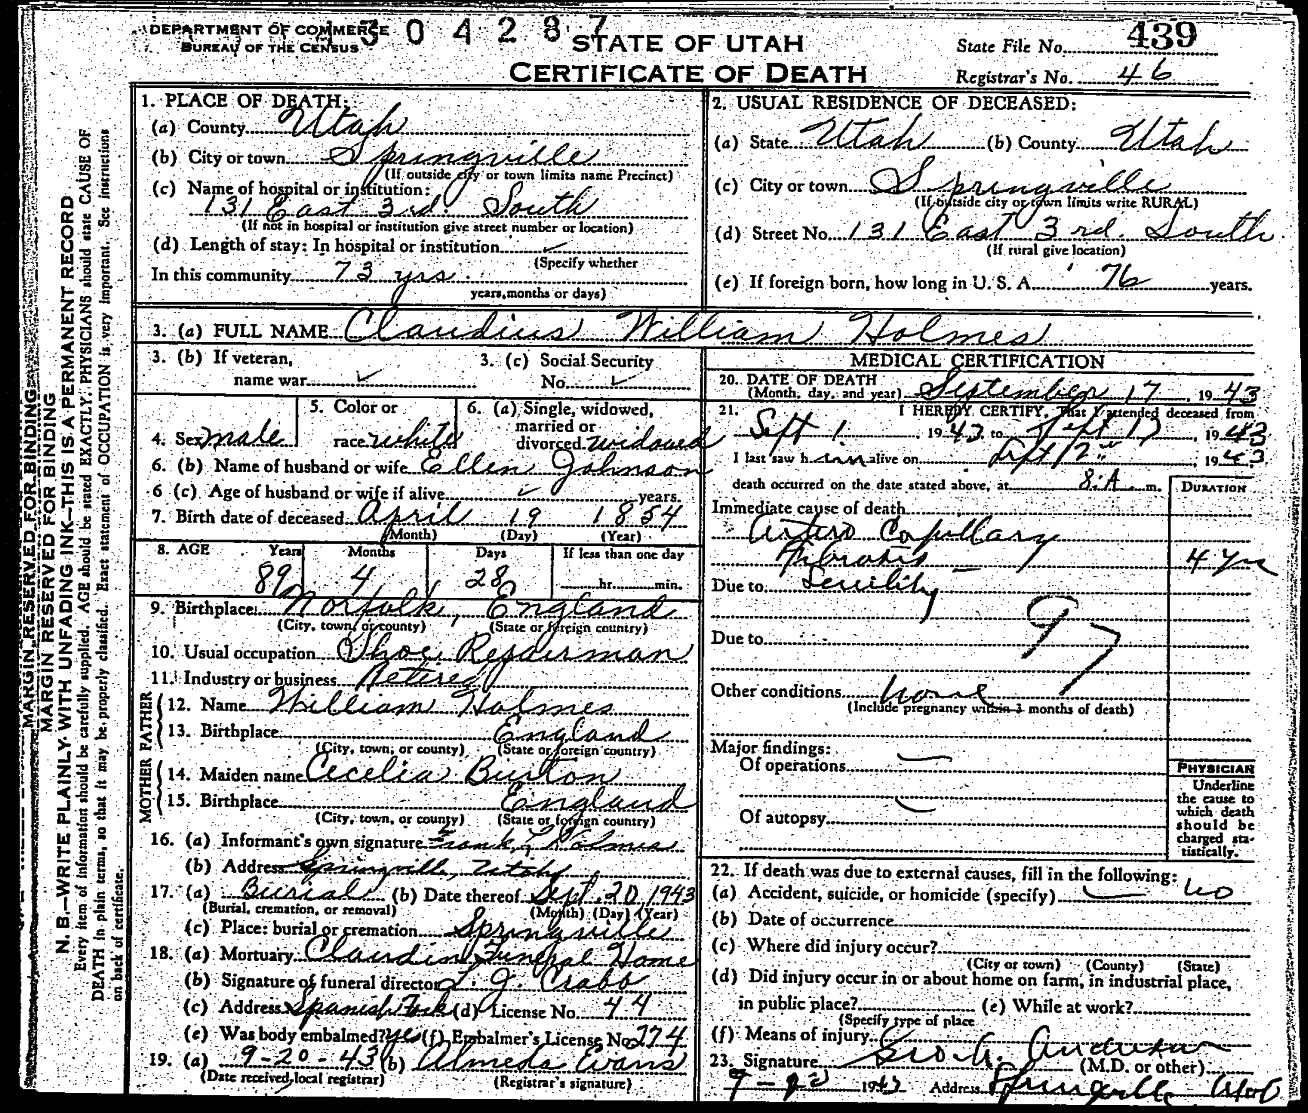 DEPARTMENT OF COMMERCE
BUREAU OF THE CENSUS
1304287
STATE OF UTAH
CERTIFICATE OF DEATH
State File No. 439
Registrar's No. 46
1. PLACE OF DEATH:
(a) County Utah
(b) City or town Springville
(If outside city or town limits name Precinct)
(c) Name of hospital or institution:
131 East 3rd. South
(If not in hospital or institution give street number or location)
(d) Length of stay: In hospital or institution ✓
(Specify whether
In this community 73 yrs.
years, months or days)
2. USUAL RESIDENCE OF DECEASED:
(a) State Utah (b) County Utah
(c) City or town Springville
(If outside city or town limits write RURAL)
(d) Street No. 131 East 3rd. South
(If rural give location)
(e) If foreign born, how long in U. S. A. 76 years.
3. (a) FULL NAME Claudius William Holmes
3. (b) If veteran,
name war ✓
3. (c) Social Security
No. ✓
4. Sex male
5. Color or
race white
6. (a) Single, widowed,
married or
divorced widowed
6. (b) Name of husband or wife Ellen Johnson
6 (c) Age of husband or wife if alive ✓ years.
7. Birth date of deceased April 19 1854
(Month) (Day) (Year)
8. AGE Years Months Days If less than one day
89 4 28 hr. min.
9. Birthplace Norfolk, England
(City, town, or county) (State or foreign country)
10. Usual occupation Shoe Repairman
11. Industry or business Retired
FATHER
12. Name William Holmes
13. Birthplace England
(City, town, or county) (State or foreign country)
MOTHER
14. Maiden name Cecelia Burton
15. Birthplace England
(City, town, or county) (State or foreign country)
16. (a) Informant's own signature Frank L Holmes
(b) Address Springville, Utah
17. (a) Burial (b) Date thereof Sept. 20, 1943
(Burial, cremation, or removal) (Month) (Day) (Year)
(c) Place: burial or cremation Springville
18. (a) Mortuary Claudin Funeral Home
(b) Signature of funeral director L. J. Crabb
(c) Address Spanish Fork (d) License No. 44
(e) Was body embalmed? yes (f) Embalmer's License No. 274
19. (a) 9-20-43 (b) Almeda Evans
(Date received local registrar) (Registrar's signature)
MEDICAL CERTIFICATION
20. DATE OF DEATH
(Month, day, and year) September 17, 1943
21. I HEREBY CERTIFY, That I attended deceased from
Sept 1, 1943 to Sept 17, 1943
I last saw him alive on Sept 12", 1943
death occurred on the date stated above, at 8:A. m.
DURATION
Immediate cause of death
Arterio Capillary
Fibrosis 4 Yrs
Due to Senility -
97
Due to
Other conditions none
(Include pregnancy within 3 months of death)
Major findings:
Of operations
Of autopsy
PHYSICIAN
Underline
the cause to
which death
should be
charged sta-
tistically.
22. If death was due to external causes, fill in the following:
(a) Accident, suicide, or homicide (specify) no
(b) Date of occurrence
(c) Where did injury occur?
(City or town) (County) (State)
(d) Did injury occur in or about home on farm, in industrial place,
in public place? (e) While at work?
(Specify type of place
(f) Means of injury
23. Signature Geo. A. Anderson (M.D. or other)
1943 Address Springville Utah
MARGIN RESERVED FOR BINDING
MARGIN RESERVED FOR BINDING
N. B.—WRITE PLAINLY WITH UNFADING INK—THIS IS A PERMANENT RECORD
Every item of information should be carefully supplied. AGE should be stated EXACTLY. PHYSICIANS should state CAUSE OF
DEATH in plain terms, so that it may be properly classified. Exact statement of OCCUPATION is very important. See instructions
on back of certificate.